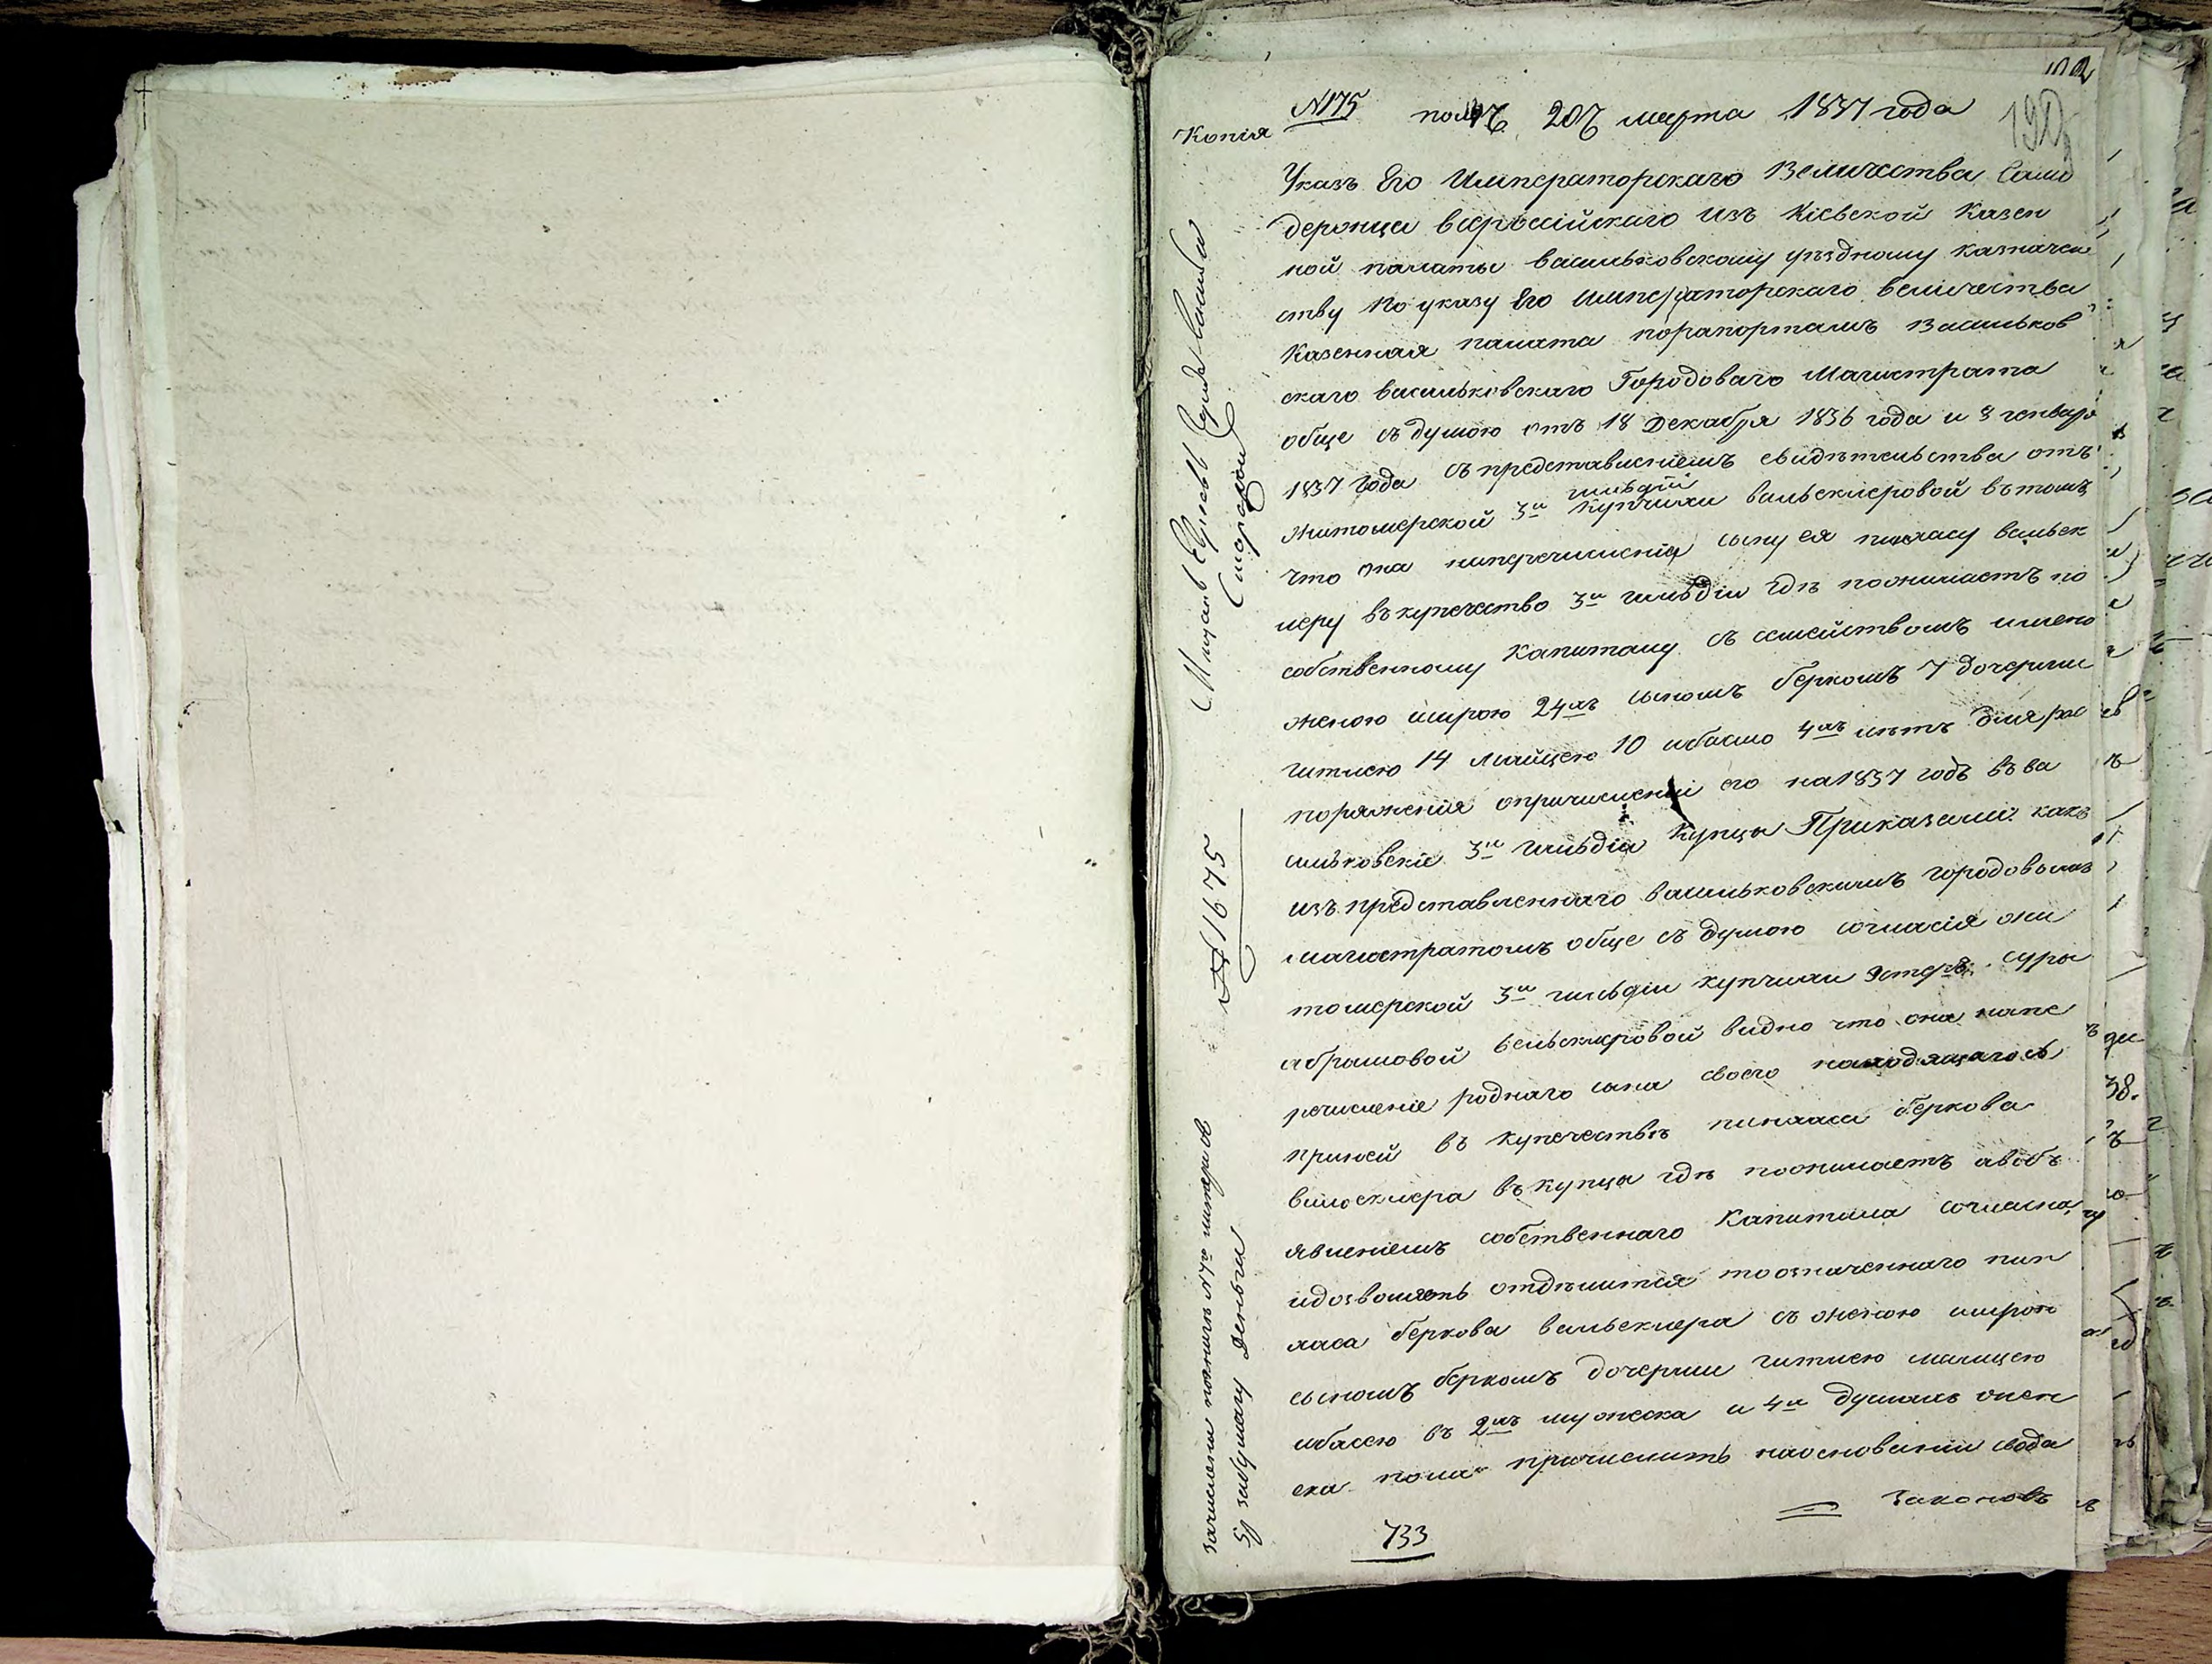 Копія
№175 пол 20 марта 1837 года
Указъ Его Императорскаго Величества Само
держца всеросійскаго изъ Кіевской Казен
ной палаты васильковскому уѣздному казначей
ству По указу Его Императорскаго величества
Казенная палата порапортамъ Васильков
скаго васильковскаго Городоваго Магистрата
обще съ думою отъ 18 Декабря 1836 года и 8 генваря
1837 года съ представленіемъ свидѣтельства отъ
гильдіи
житомерской 3й купчихи вельсклеровой въ томъ
что она наперечисленія сыну ея пинхасу вельск
леру въ купечество 3й гильдіи гдѣ пожилаетъ по
собственному капиталу съ семействомъ имено
женою широю 24хъ сыномъ беркомъ 7 дочерми
гитлею 14 малцею 10 ибасею 4хъ летъ для рас
поряженія опричисленіи его на 1837 годъ въ ва
сильковскіе 3й гильдіи купцы Приказали: какъ
изъ представленнаго васильковскимъ городовымъ
магистратомъ обще съ думою согласія жи
томерской 3й гильдіи купчихи Эстеръ суры
абрамовой вельсклеровой видно что она напе
речисленіе роднаго сына своего находящагось
приней въ купечествѣ пинхаса беркова
вельсклера въ купцы гдѣ пожилаетъ авобъ
явленіемъ собственнаго Капитала согласна
идозволяетъ отдѣлится тоозначеннаго пин
хаса беркова вельсклера съ женою широю
сыномъ беркомъ дочерми гитлею малицею
ибасею въ 2хъ мужеска и 4х душахъ женс
ка пола причислить наоснованіи свода
Законовъ
733
№ 11675